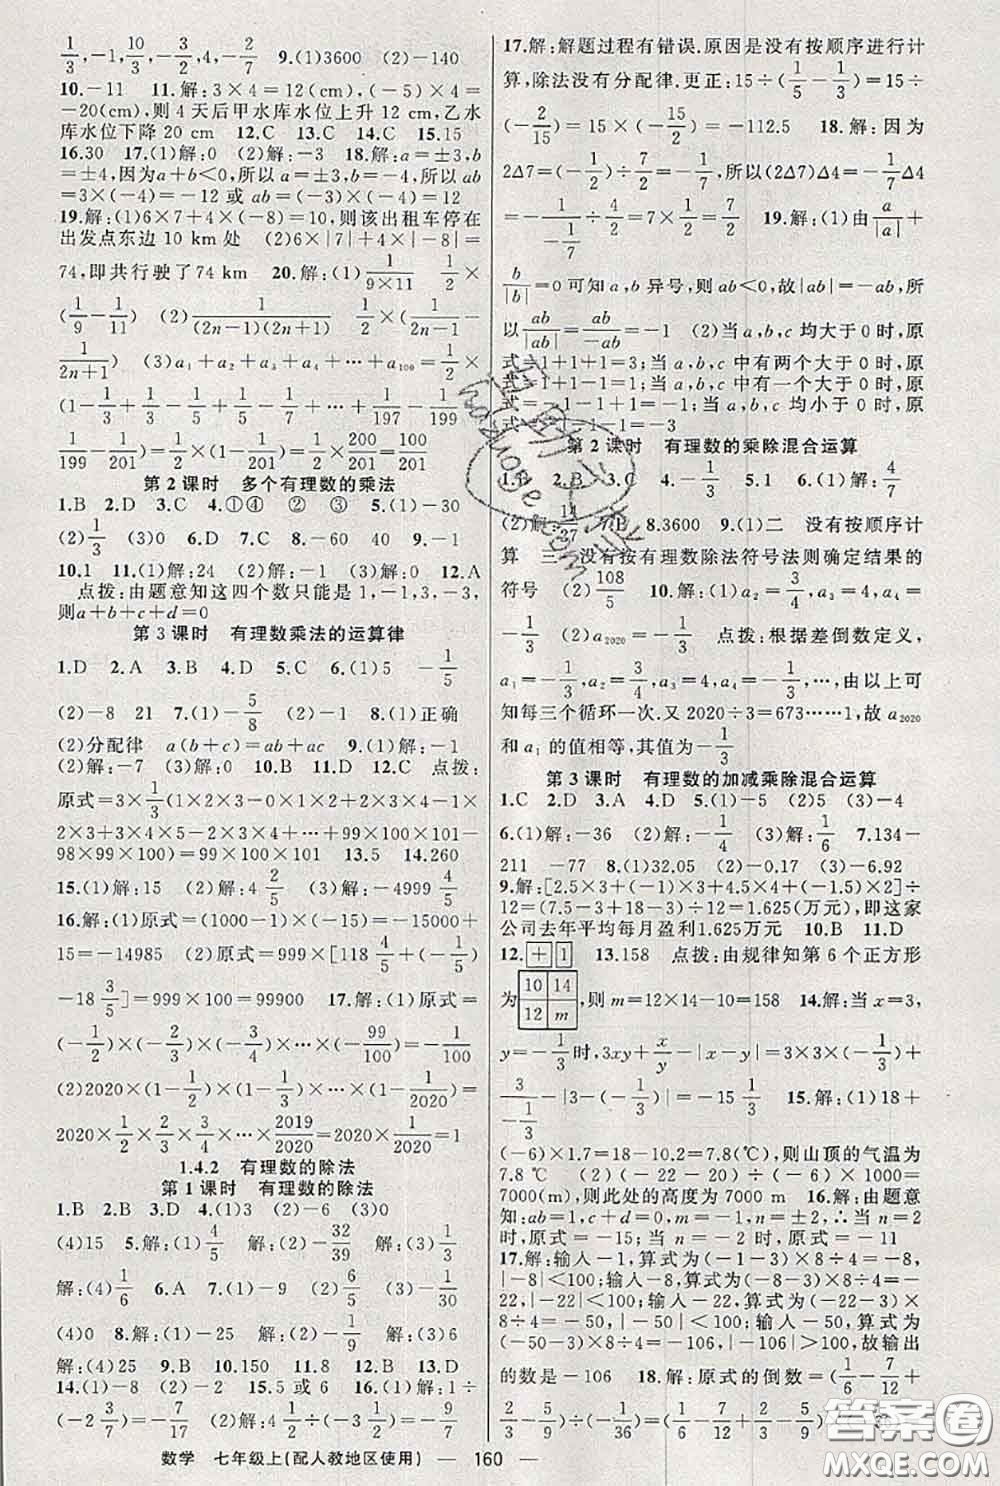 1/3,-1,10/3,-3/2,-4/7 9.(1)3600 (2)-140
10.-11 11.解:3×4=12(cm),(-5)×4=
-20(cm),则4天后甲水库水位上升12 cm,乙水
库水位下降20 cm 12.C 13.C 14.C 15.15
16.30 17.(1)解:0 (2)解:-3 18.解:a=±3,b
=±4,因为a+b<0,所以a=±3,b=-4,所以
ab=3×(-4)=-12或ab=(-3)×(-4)=12
19.解:(1)6×7+4×(-8)=10,则该出租车停在
出发点东边10 km处 (2)6×|7|+4×|-8|=
74,即共行驶了74 km 20.解:(1)1/(9×11) 1/2×
(1/9-1/11) (2)1/((2n-1)(2n+1)) 1/2×(1/(2n-1)-
1/(2n+1)) (3)a₁+a₂+a₃+a₄+…+a₁₀₀=1/2×
(1-1/3+1/3-1/5+1/5-1/7+…+1/197-1/199+
1/199-1/201)=1/2×(1-1/201)=1/2×200/201=100/201
第2课时 多个有理数的乘法
1.B 2.D 3.C 4.①④ ② ③ 5.(1)-30
(2)1/3 (3)0 6.D 7.C 8.-60 40 9.-1
10.1 11.(1)解:24 (2)解:-1 (3)解:0 12.A
点拨:由题意知这四个数只能是1,-1,3,-3,
则a+b+c+d=0
第3课时 有理数乘法的运算律
1.D 2.A 3.B 4.D 5.C 6.(1)5 -1/5
(2)-8 21 7.(1)-5/8 (2)-6 8.(1)正确
(2)分配律 a(b+c)=ab+ac 9.(1)解:-1
(2)解:-7 (3)解:0 10.B 11.D 12.C 点拨:
原式=3×1/3(1×2×3-0×1×2+2×3×4-1×
2×3+3×4×5-2×3×4+…+99×100×101-
98×99×100)=99×100×101 13.5 14.260
15.(1)解:15 (2)解:4 2/5 (3)解:-4999 4/5
16.解:(1)原式=(1000-1)×(-15)=-15000+
15=-14985 (2)原式=999×[118 4/5+(-1/5)
-18 3/5]=999×100=99900 17.解:(1)原式=
(-1/2)×(-2/3)×(-3/4)×…×(-99/100)=-1/100
(2)2020×(1-1/2)×(1-1/3)×…×(1-1/2020)=
2020×1/2×2/3×3/4×…×2019/2020=2020×1/2020=1
1.4.2 有理数的除法
第1课时 有理数的除法
1.B 2.B 3.D 4.(1)3 (2)-6 (3)0
(4)15 5.解:(1)4/5 解:(2)-32/39 解:(3)-1/9
解:(4)1/6 6.A 7.(1)-9 (2)1/6 (3)-1/30
(4)0 8.解:(1)-25 解:(2)-1/9 解:(3)0
解:(4)25 9.B 10.150 11.8 12.B 13.D
14.(1)-8 (2)-2 15.5或6 16.(1)解:1÷
(-2 3/7)=-7/17 (2)解:4 1/2÷(-3 1/2)=-9/7
17.解:解题过程有错误.原因是没有按顺序进行计
算,除法没有分配律.更正:15÷(1/5-1/3)=15÷
(-2/15)=15×(-15/2)=-112.5 18.解:因为
2Δ7=(-1/2)÷7/2=-1/7,所以(2Δ7)Δ4=-1/7Δ4
=-1/(-1/7)÷4/2=7×1/2=7/2 19.解:(1)由a/|a|+
b/|b|=0可知a,b异号,则ab<0,故|ab|=-ab,所
以ab/|ab|=ab/-ab=-1 (2)当a,b,c均大于0时,原
式=1+1+1=3;当a,b,c中有两个大于0时,原
式=1+1-1=1;当a,b,c中有一个大于0时,原
式=-1-1+1=-1;当a,b,c均小于0时,原
式=-1-1-1=-3
第2课时 有理数的乘除混合运算
1.A 2.B 3.C 4.-1/3 5.1 6.(1)解:4/7
(2)解:14/27 7.B 8.3600 9.(1)二 没有按顺序计
算 三 没有按有理数除法符号法则确定结果的
符号 (2)108/5 10.解:(1)a₂=3/4,a₃=4,a₄=
-1/3 (2)a₂₀₂₀=-1/3 点拨:根据差倒数定义,
a₁=-1/3,a₂=3/4,a₃=4,a₄=-1/3,…,由以上可
知每三个循环一次.又2020÷3=673……1,故a₂₀₂₀
和a₁的值相等,其值为-1/3
第3课时 有理数的加减乘除混合运算
1.C 2.D 3.A 4.D 5.(1)-5 (2)5 (3)-4
6.(1)解:-36 (2)解:-1/4 (3)解:1/6 7.134-
211 -77 8.(1)32.05 (2)-0.17 (3)-6.92
9.解:[2.5×3+(-1)×3+4.5×4+(-1.5)×2]÷
12=(7.5-3+18-3)÷12=1.625(万元),即这家
公司去年平均每月盈利1.625万元 10.B 11.D
12.+ 1 13.158 点拨:由规律知第6个正方形
为 10 14 12 m ,则m=12×14-10=158 14.解:当x=3,
y=-1/3时,3xy+x/y-|x-y|=3×3×(-1/3)+
3/(-1/3)-|3-(-1/3)|=-3-9-10/3=-46/3 15.解:(1)18+
(-6)×1.7=18-10.2=7.8(℃),则山顶的气温为
7.8℃ (2)(-22-20)÷(-6)×1000=
7000(m),则此处的高度为7000 m 16.解:由题意
知:ab=1,c+d=0,m=-1,n=±2,∴当n=2
时,原式=-15;当n=-2时,原式=-11
17.解:输入-1,算式为(-1-3)×8÷4=-8,
|-8|<100;输入-8,算式为(-8-3)×8÷4=-
22,|-22|<100;输入-22,算式为(-22-3)×
8÷4=-50,|-50|<100;输入-50,算式为
(-50-3)×8÷4=-106,|-106|>100,故输出
的数是-106 18.解:原式的倒数=(1/6-7/12+
2/3-5/9)÷
数学 七年级上(配人教地区使用) — 160 —
答案卷